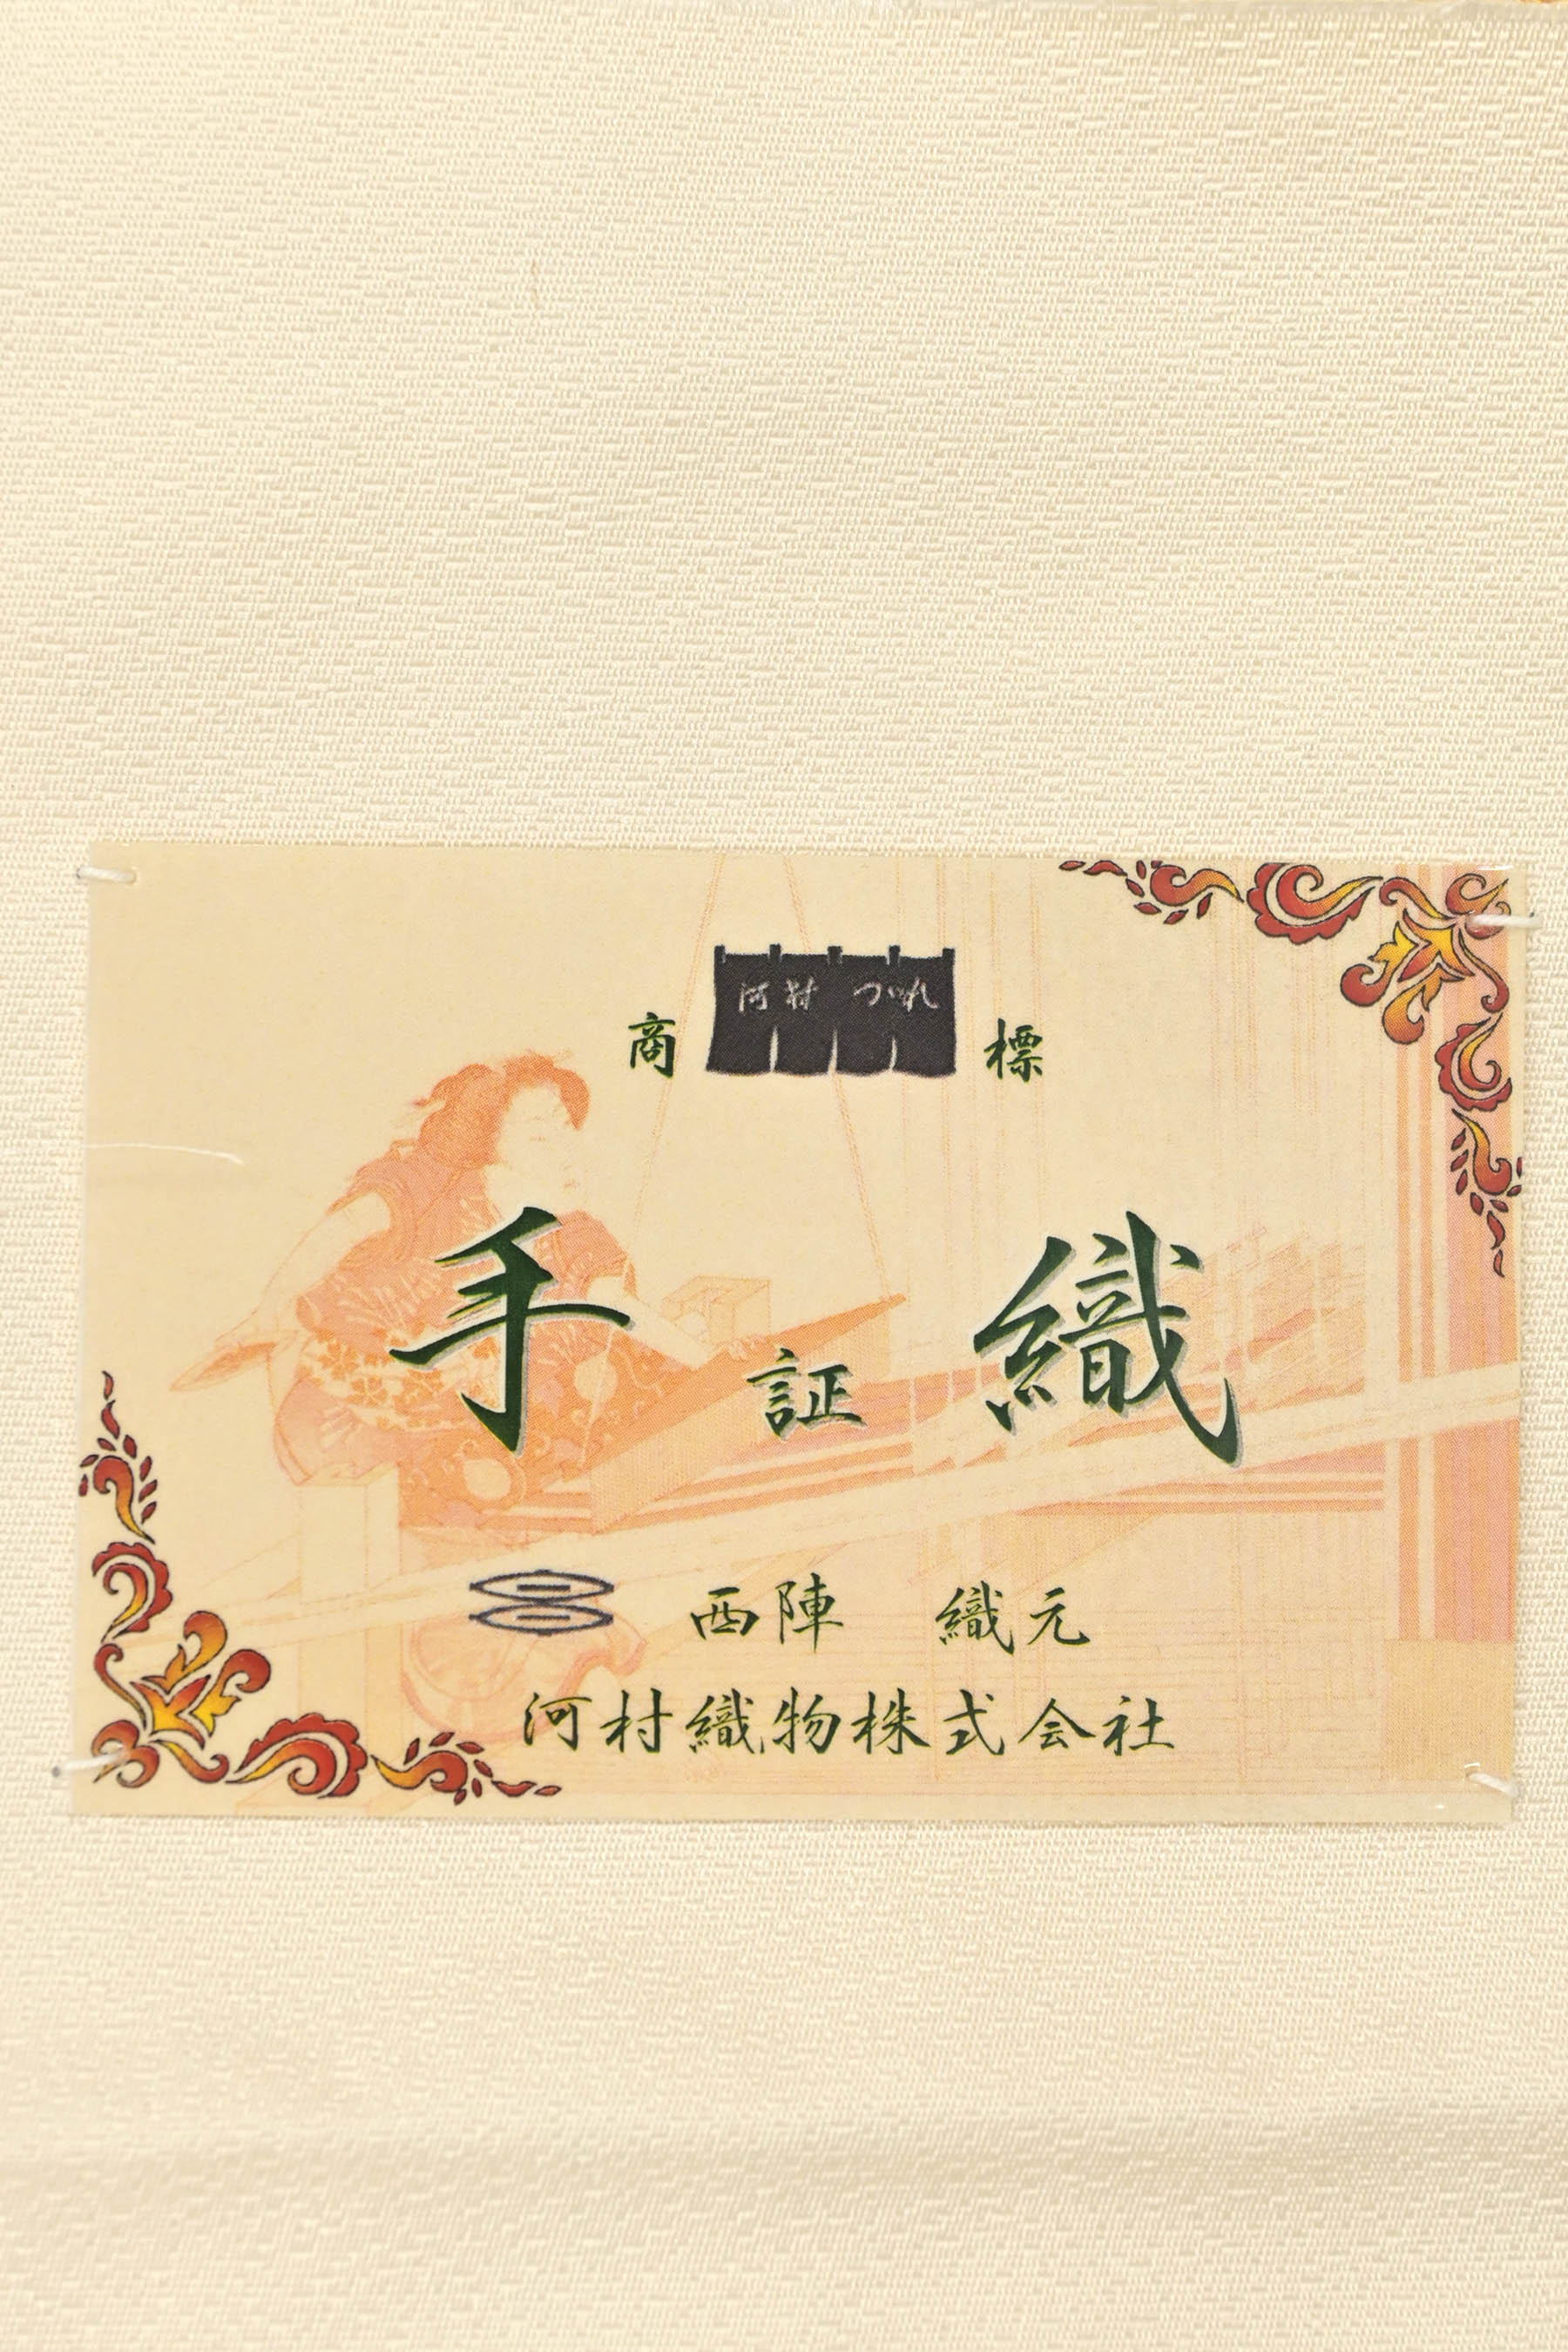 河村 つづれ
商 標
手 証 織
西陣 織元
河村織物株式会社